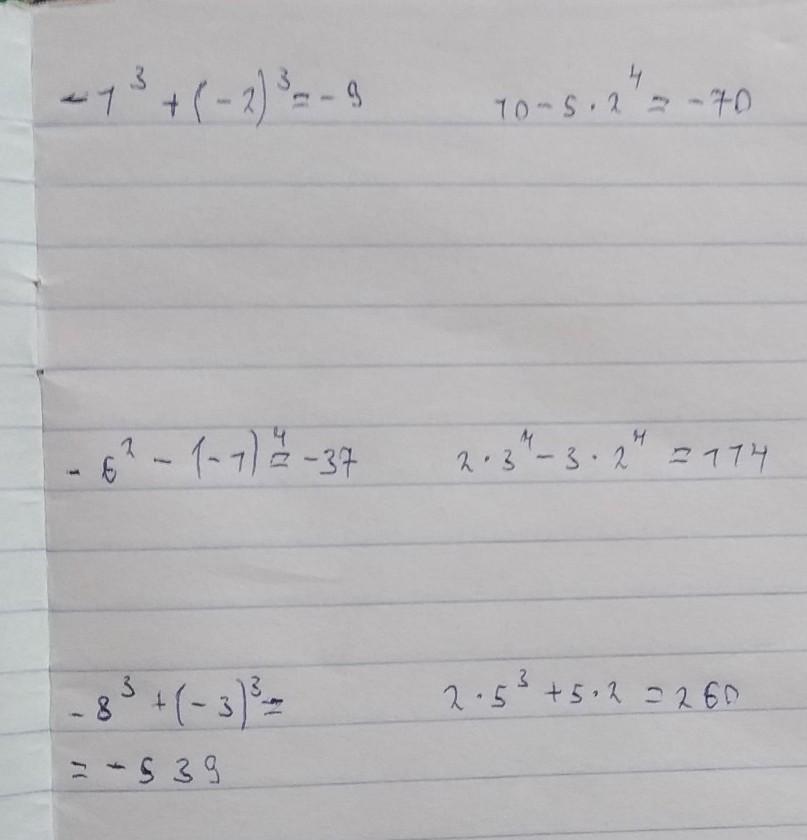 -1³ + (-2)³ = -9
10 - 5 · 2⁴ = -70
-6² - (-1)⁴ = -37
2 · 3⁴ - 3 · 2⁴ = 114
-8³ + (-3)³ =
= -539
2 · 5³ + 5 · 2 = 260